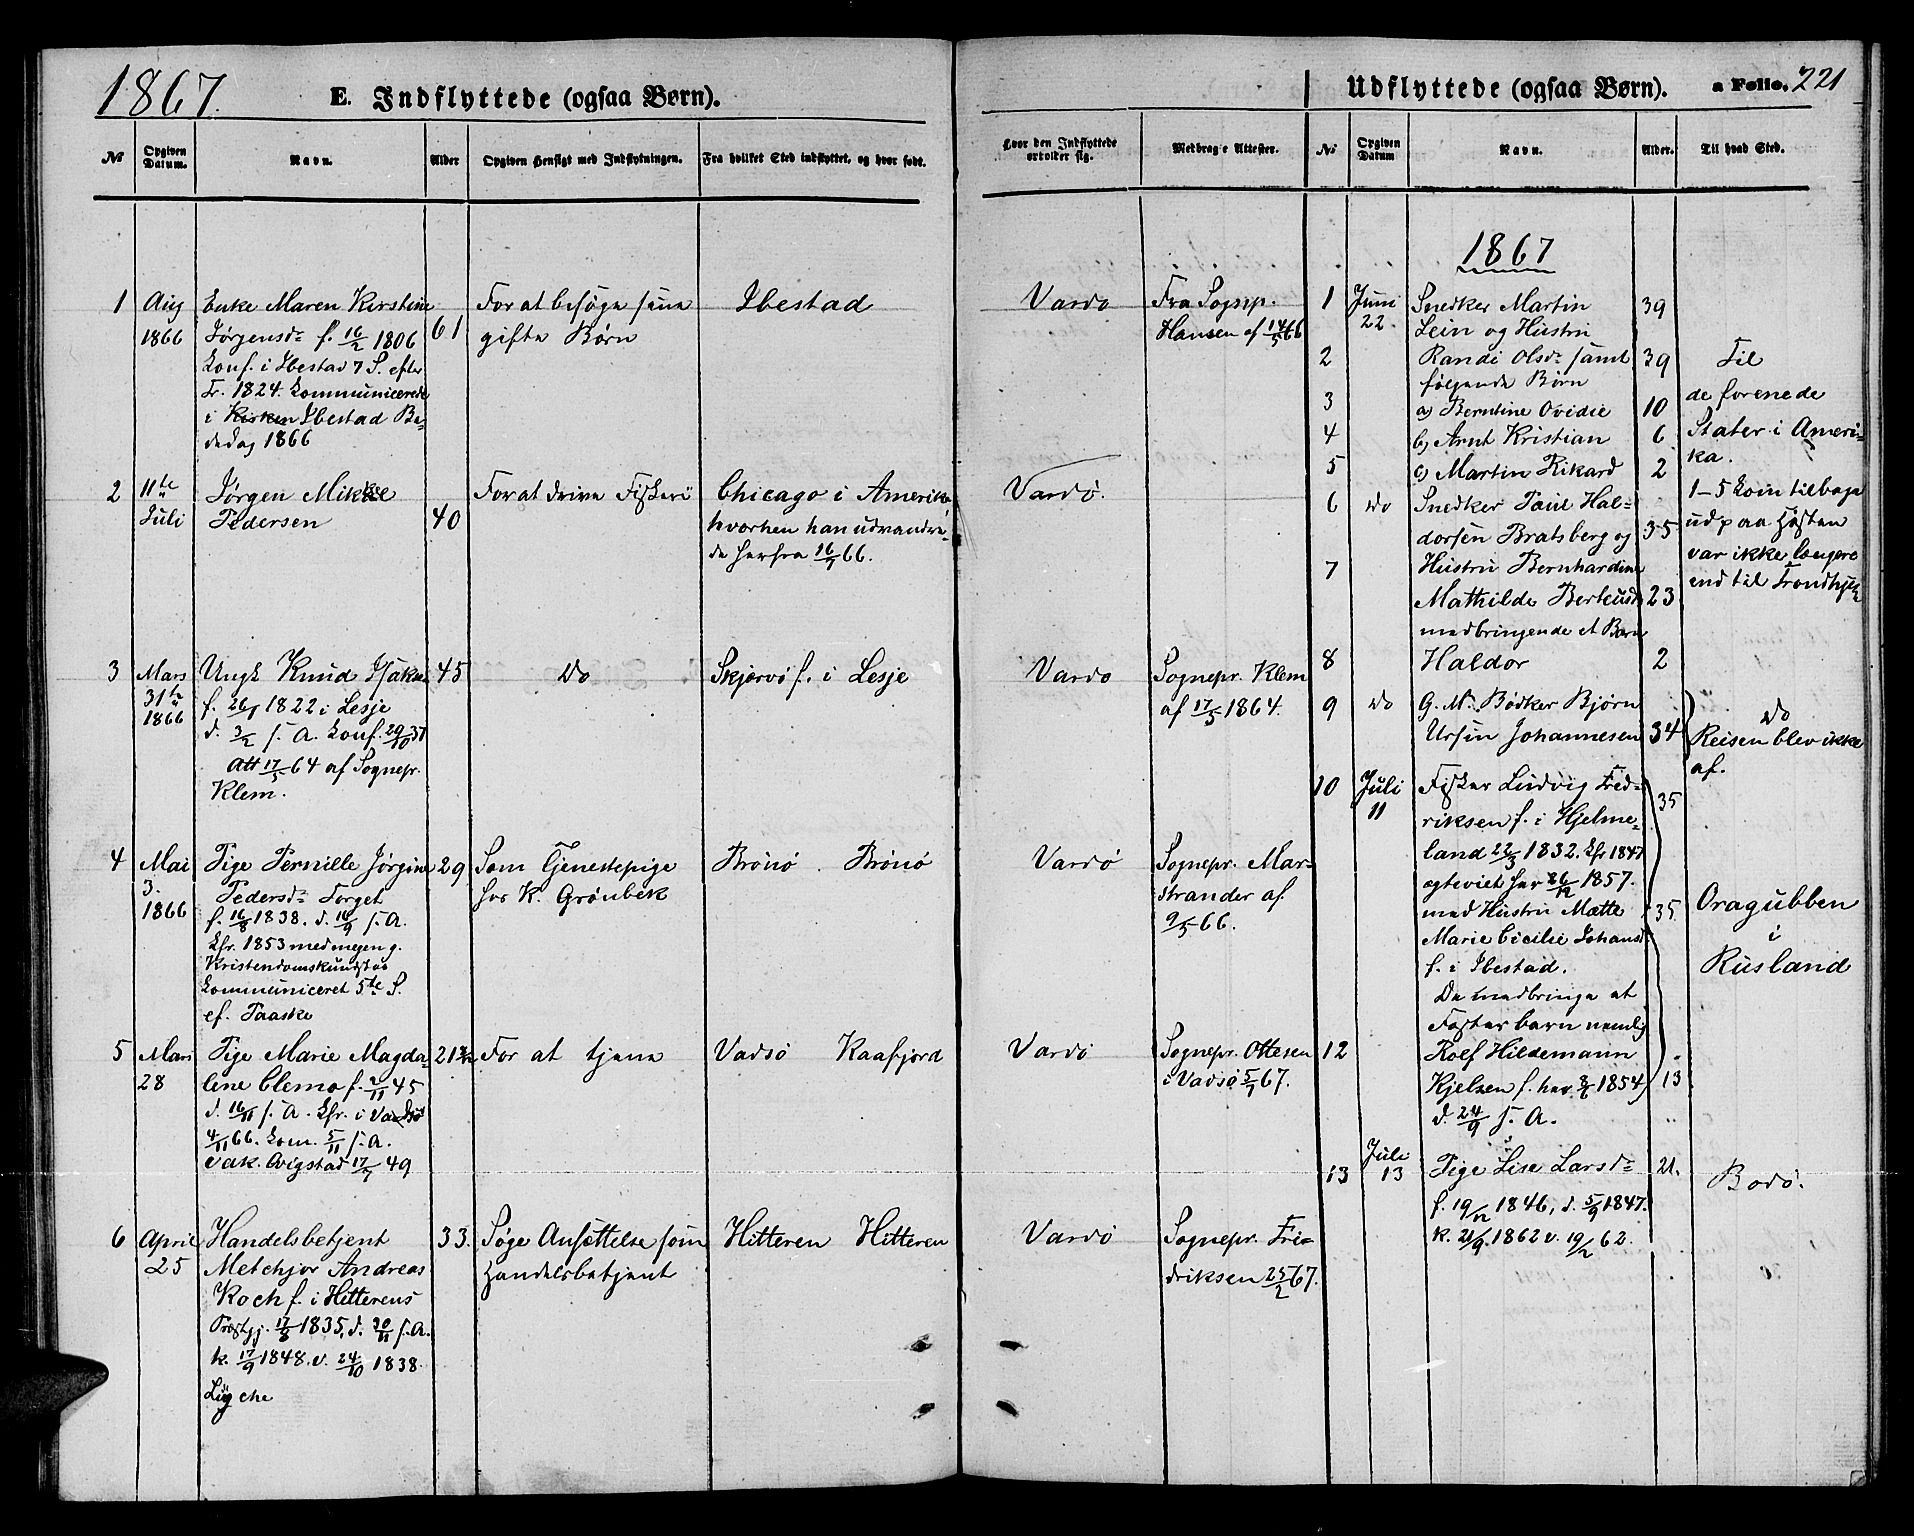 1867.
E. Indflyttede (ogsaa Børn).
№
Opgiven Datum.
Navn.
Alder
Opgiven Hensigt med Indflytningen.
Fra hvilket Sted indflyttet, og hvor født.
1
Aug 1866
Enke Maren Kirstine
Jørgensd. f. 16/2 1806
Konf. i Ibestad 7 S. efter
Tr. 1824. Kommunicerede
i Kirken Ibestad Be=
dedag 1866
61
For at besøge sine
gifte Børn
Ibestad
2
11te Juli
Jørgen Mikkel
Pedersen
40
For at drive Fiskeri
Chicago i Amerika
hvorhen han udvandre=
de herfra 16/7 66.
3
Mars
31te
1866
Ungk. Knud Isaks.
f. 26/1 1822 i Lesje
d. 3/2 s. A. Konf. 29/10 37
Att 17/5 64 af Sognepr.
Klem.
45
Do
Skjærvö f. i Lesje
4
Mai
3.
1866
Pige Pernille Jørgine
Pedersd. Torget
f. 16/8 1838. d. 16/9 s. A.
Kfr. 1853 med megen g.
Kristendomskundskab
Kommuniceret 5te S.
ef. Paaske
29
Som Tjenestepige
hos K. Grönbek
Brönö . Brönö
5
Mars
28
Pige Marie Magda=
lene Clemo f. 2/11 45
d. 16/11 s. A. Kfr. i Vadsö
4/11 66. Kom. 5/11 s. A.
vak. Qvigstad 17/7 49
21
For at tjene
Vadsö Kaafjord
6
April
25
Handelsbetjent
Melchjor Andreas
Koch f. i Hitterens
Præstgj. 17/8 1835, d. 30/11 s. A.
k. 17/9 1848. v. 24/10 1838.
Lyche
33.
Søge Ansættelse som
Handelsbetjent
Hitteren Hitteren
Hvor den Indflyttede
ortviker sig.
Medbrag e Attester.
Vardö
Fra Sognp.
Hansen af 14/5 66
Vardö.
Vardö
Sognepr. Klem
af 17/5 1864.
Vardö
Sognepr. Mar=
strander af
9/5 66.
Vardö
Sognepr. Ottesen
i Vadsö 5/7 67.
Vardö
Sognepr. Fre=
driksen 25/2 67.
Udflyttede (ogsaa Børn).
a Folio. 221
No
Opgiven Datum
Navn.
Alder.
Til hvad Sted.
1867
1
Juni
22.
Snedker Martin
Lein og Hustru
39
2
Randi Olsd. samt
følgende Børn
39
3
a) Berntine Ovidie
10
4
b) Arnt Kristian
6
5
c) Martin Rikard
2
Til
de forenede
Stater i Ameri=
ka.
1–5 Kom tilbage
ud paa Høsten
var ikke længere
end til Trondhjem
6
Do
Snedker Paul Hal=
dorsen Bratsberg og
35
7
Hustru Bernhardine
Mathilde Berteusd.
23
medbringende et Barn
8
Haldor
2
9
Do
G. M. Bødker Bjørn
Ursin Johannesen
34
Do
Reisen blev ikke
af.
10
Juli
11
Fisker Ludvig Fred=
riksen f. i Hjelme=
land 22/3 1832. Kfr 1847
ogteviet her 26/12 1857.
med Hustru Mætte
Marie Cicilie Johansd.
f. i Ibestad.
De medbringe et
Fosterbarn nemlig
35
35
12
Rolf Hildemann
Kjelsen f. her 8/6 1854
d. 24/9 s. A.
13
Oragubben
i
Rusland
13
Juli
13
Pige Lise Larsd.
f. 19/12 1846, d. 5/9 1847.
k. 21/9 1862 v. 19/2 62.
21.
Bodö.